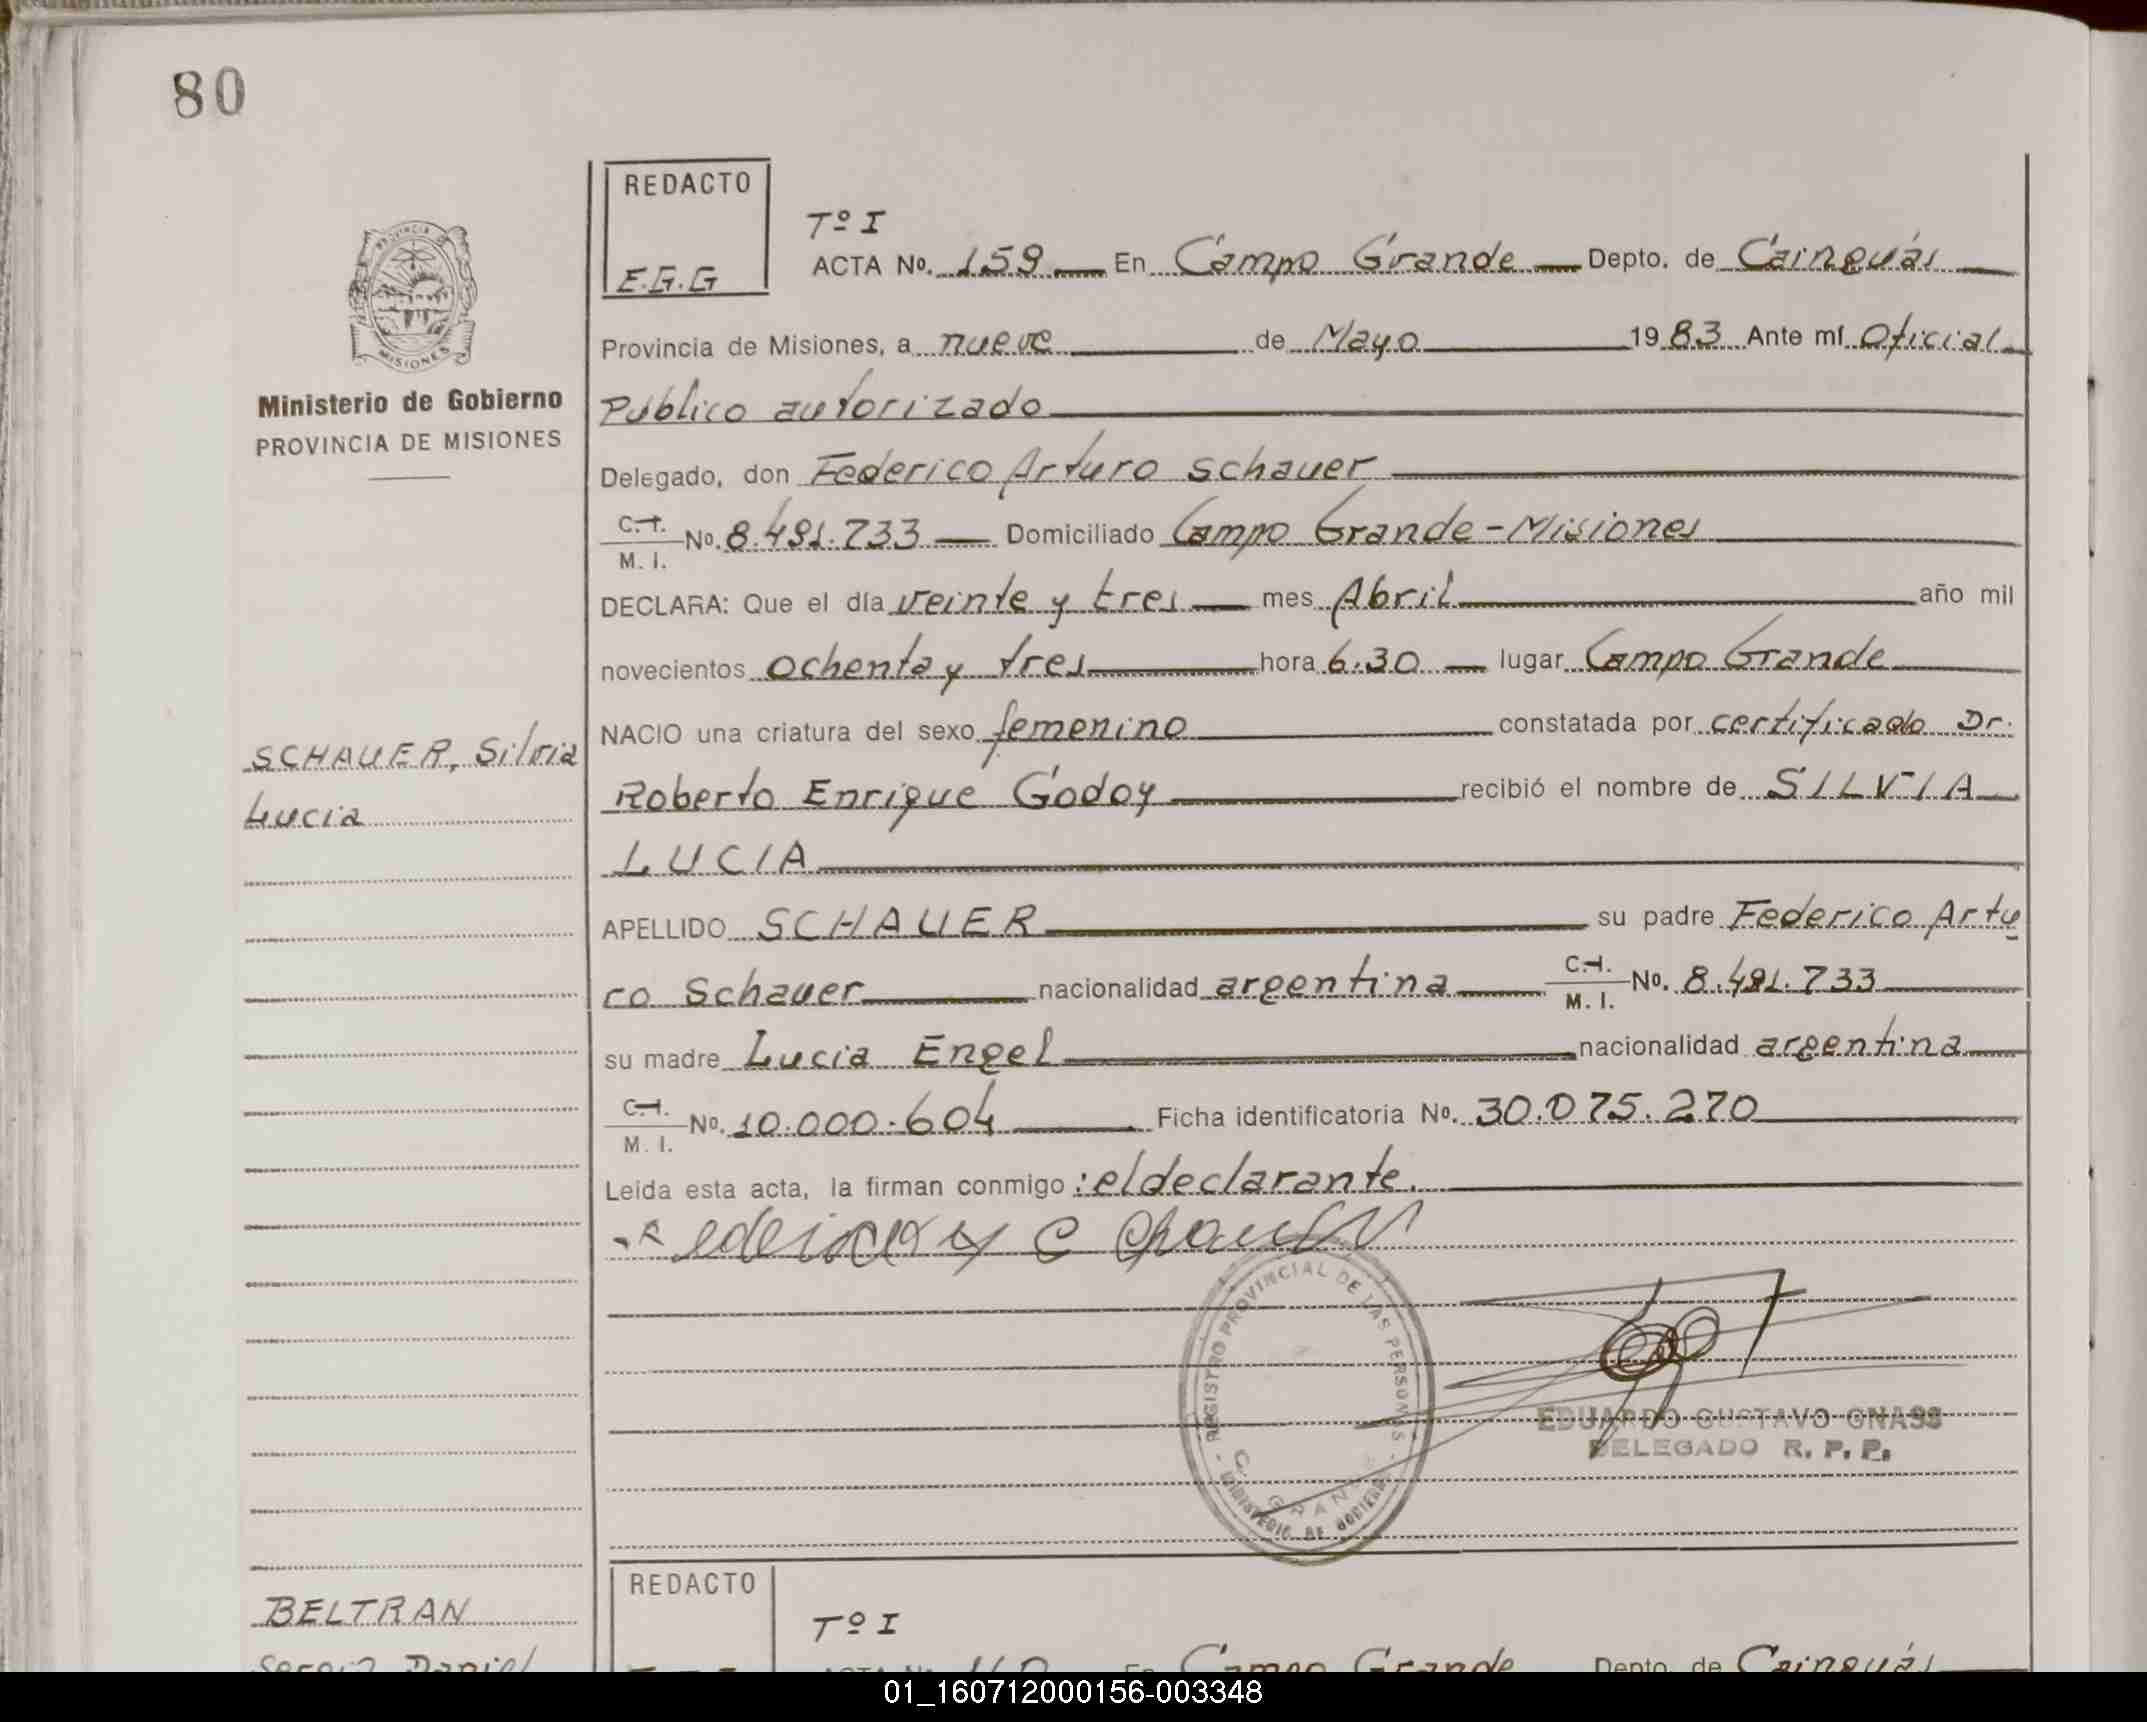 80
REDACTO
E.G.G
Tº I
ACTA Nº. 159 En Campo Grande Depto. de Cainguás
Provincia de Misiones, a nueve de Mayo 1983 Ante mí Oficial
Público autorizado
Delegado, don Federico Arturo Schauer
C.I.
M. I. Nº. 8.491.733 Domiciliado Campo Grande-Misiones
DECLARA: Que el día veinte y tres mes Abril año mil
novecientos ochenta y tres hora 6.30 lugar Campo Grande
NACIO una criatura del sexo femenino constatada por certificado Dr.
Roberto Enrique Godoy recibió el nombre de SILVIA
LUCIA
APELLIDO SCHAUER su padre Federico Artu
ro Schauer nacionalidad argentina C.I.
M. I. Nº. 8.491.733
su madre Lucia Engel nacionalidad argentina
C.I.
M. I. Nº. 10.000.604 Ficha identificatoria Nº. 30.075.270
Leida esta acta, la firman conmigo : el declarante.
PROVINCIA DE
MISIONES
Ministerio de Gobierno
PROVINCIA DE MISIONES
SCHAUER, Silvia
Lucia
REGISTRO PROVINCIAL DE LAS PERSONAS
C. GRANDE
MINISTERIO DE GOBIERNO
EDUARDO GUSTAVO GNASS
DELEGADO R. P. P.
BELTRAN
Sergio Daniel
REDACTO
Tº I
En Campo Grande Depto. de Cainguás
01_160712000156-003348